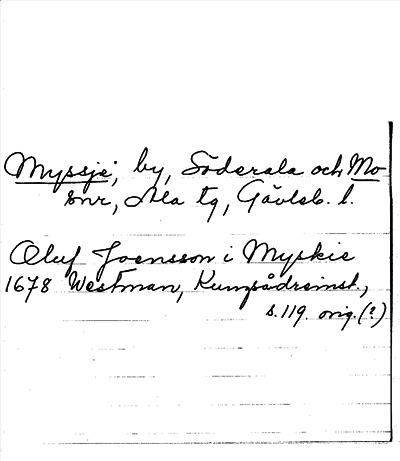 Myssje, by, Söderala och Mo
snr, Ala tg, Gävleb. l.
Oluf Joensson i Myskie
1678 Westman, Kumpådreinst.,
s. 119. orig. (?)